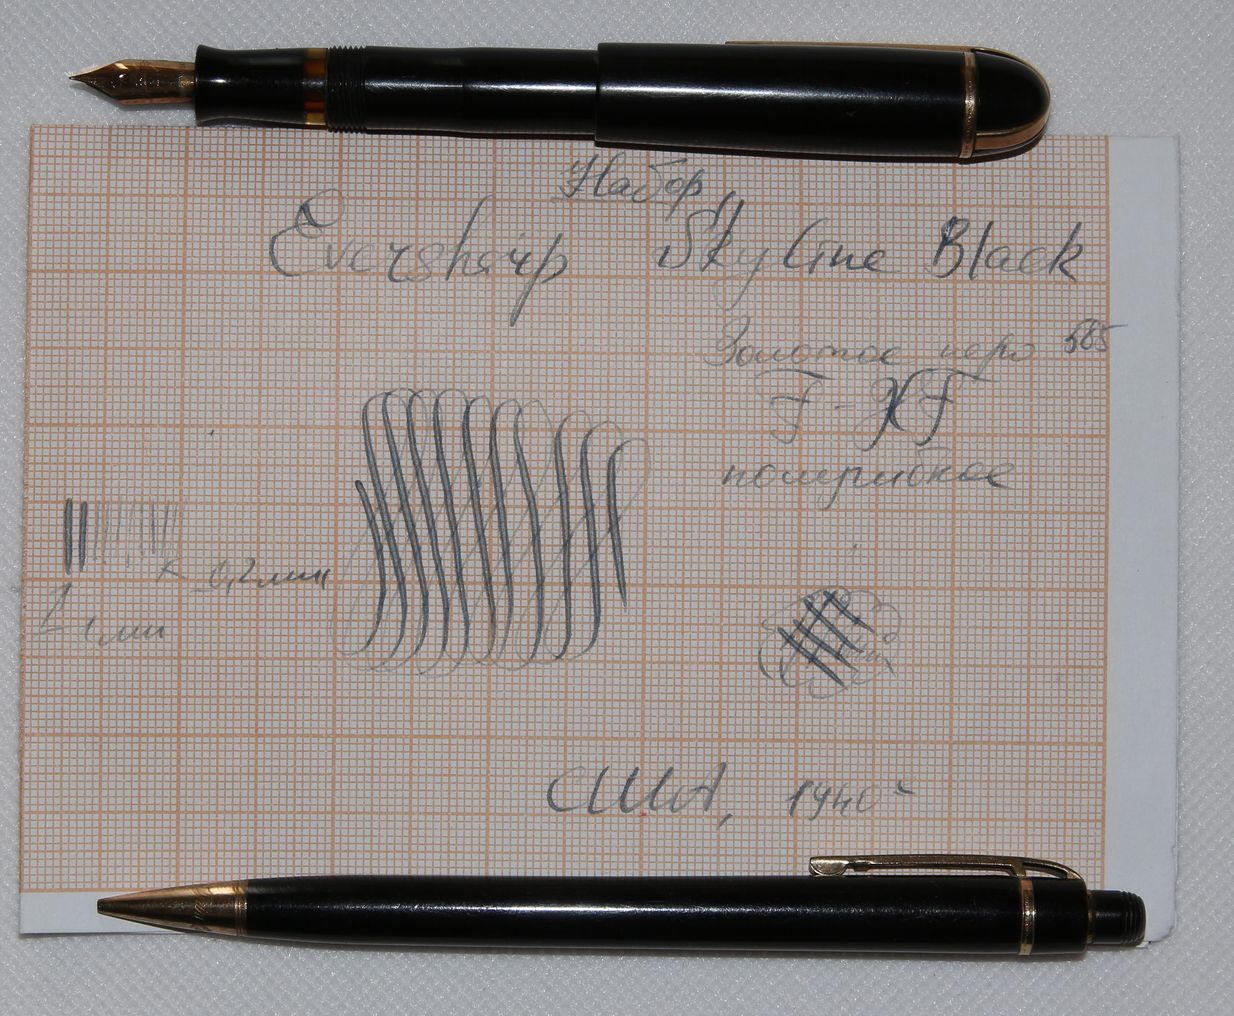 Набор
Eversharp Skyline Black
Золотое перо 585
F-XF
полугибкое
0,2мм
1мм
США, 1940~